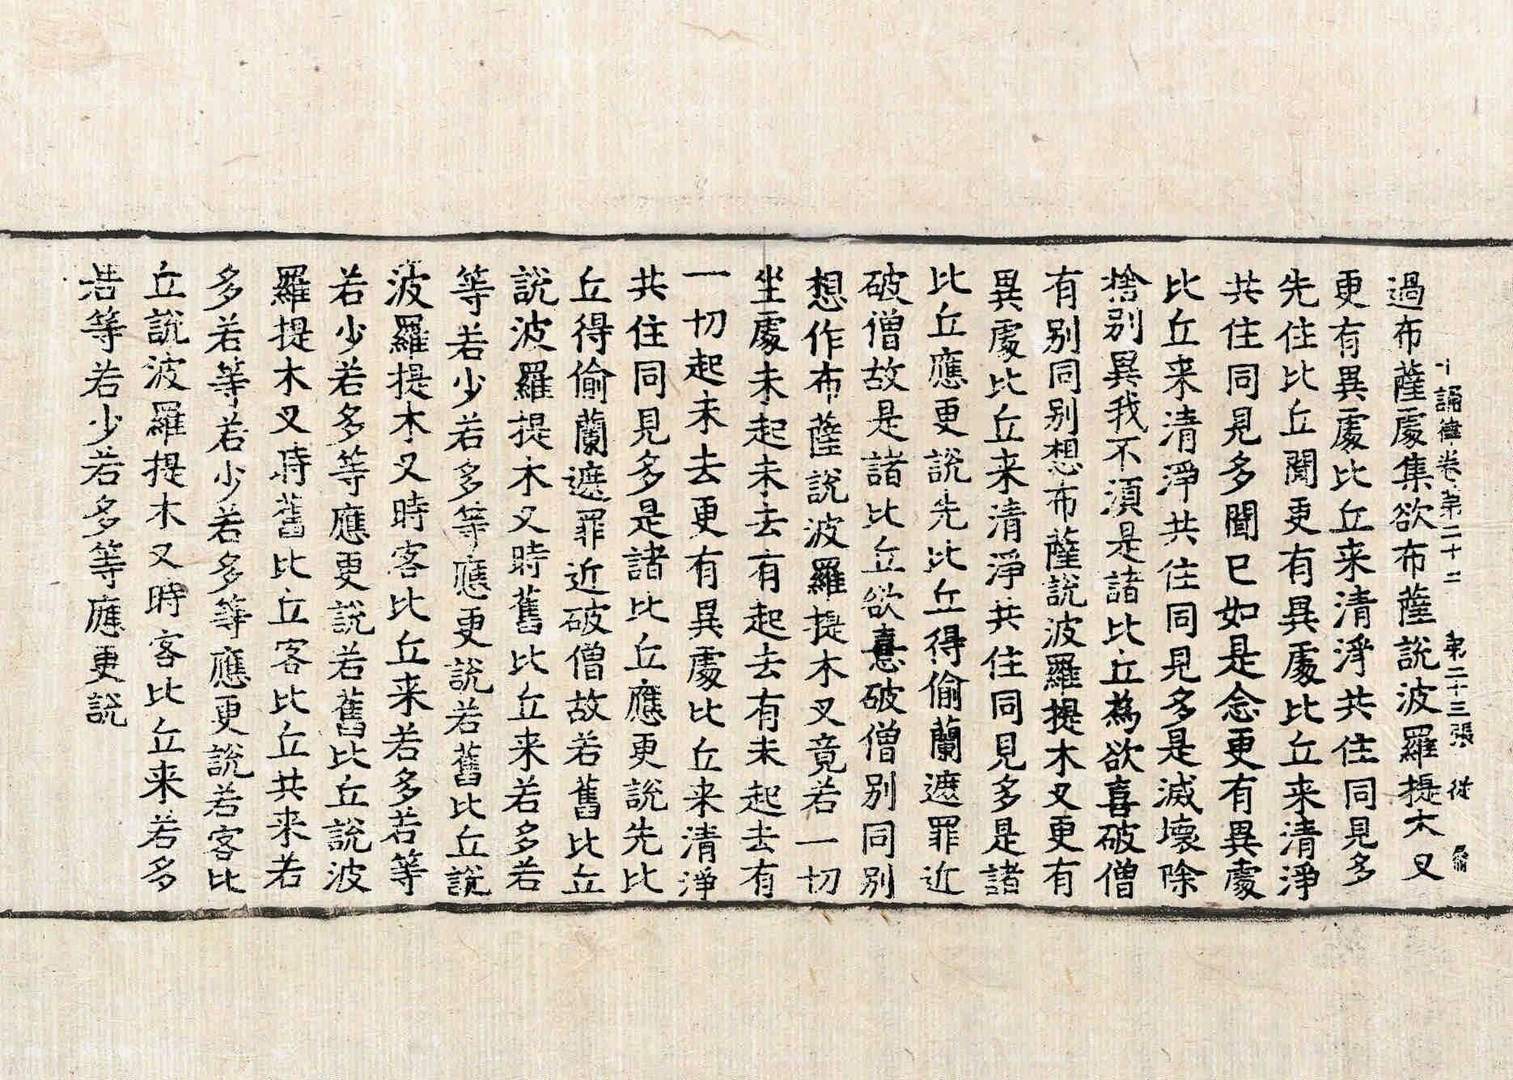 十誦律卷第二十二 第二十三張 從
過布薩處集欲布薩說波羅提木叉
更有異處比丘来清淨共住同見多
先住比丘聞更有異處比丘来清淨
共住同見多聞已如是念更有異處
比丘来清淨共住同見多是滅壞除
捨別異我不須是諸比丘為欲喜破僧
有別同別想布薩說波羅提木叉更有
異處比丘来清淨共住同見多是諸
比丘應更說先比丘得偷蘭遮罪近
破僧故是諸比丘欲憙破僧別同別
想作布薩說波羅提木叉竟若一切
坐處未起未去有起去有未起去有
一切起未去更有異處比丘来清淨
共住同見多是諸比丘應更說先比
丘得偷蘭遮罪近破僧故若舊比丘
說波羅提木叉時舊比丘来若多若
等若少若多等應更說若舊比丘說
波羅提木叉時客比丘来若多若等
若少若多等應更說若舊比丘說波
羅提木叉時舊比丘客比丘共来若
多若等若少若多等應更說若客比
丘說波羅提木叉時客比丘来若多
若等若少若多等應更說